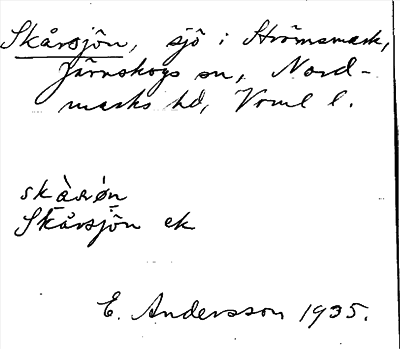 Skårsjön, sjö i Strömsmark,
Järnskogs sn, Nord-
marks hd, Vrml l.
skàrøn
Skårsjön ek
E. Andersson 1935.